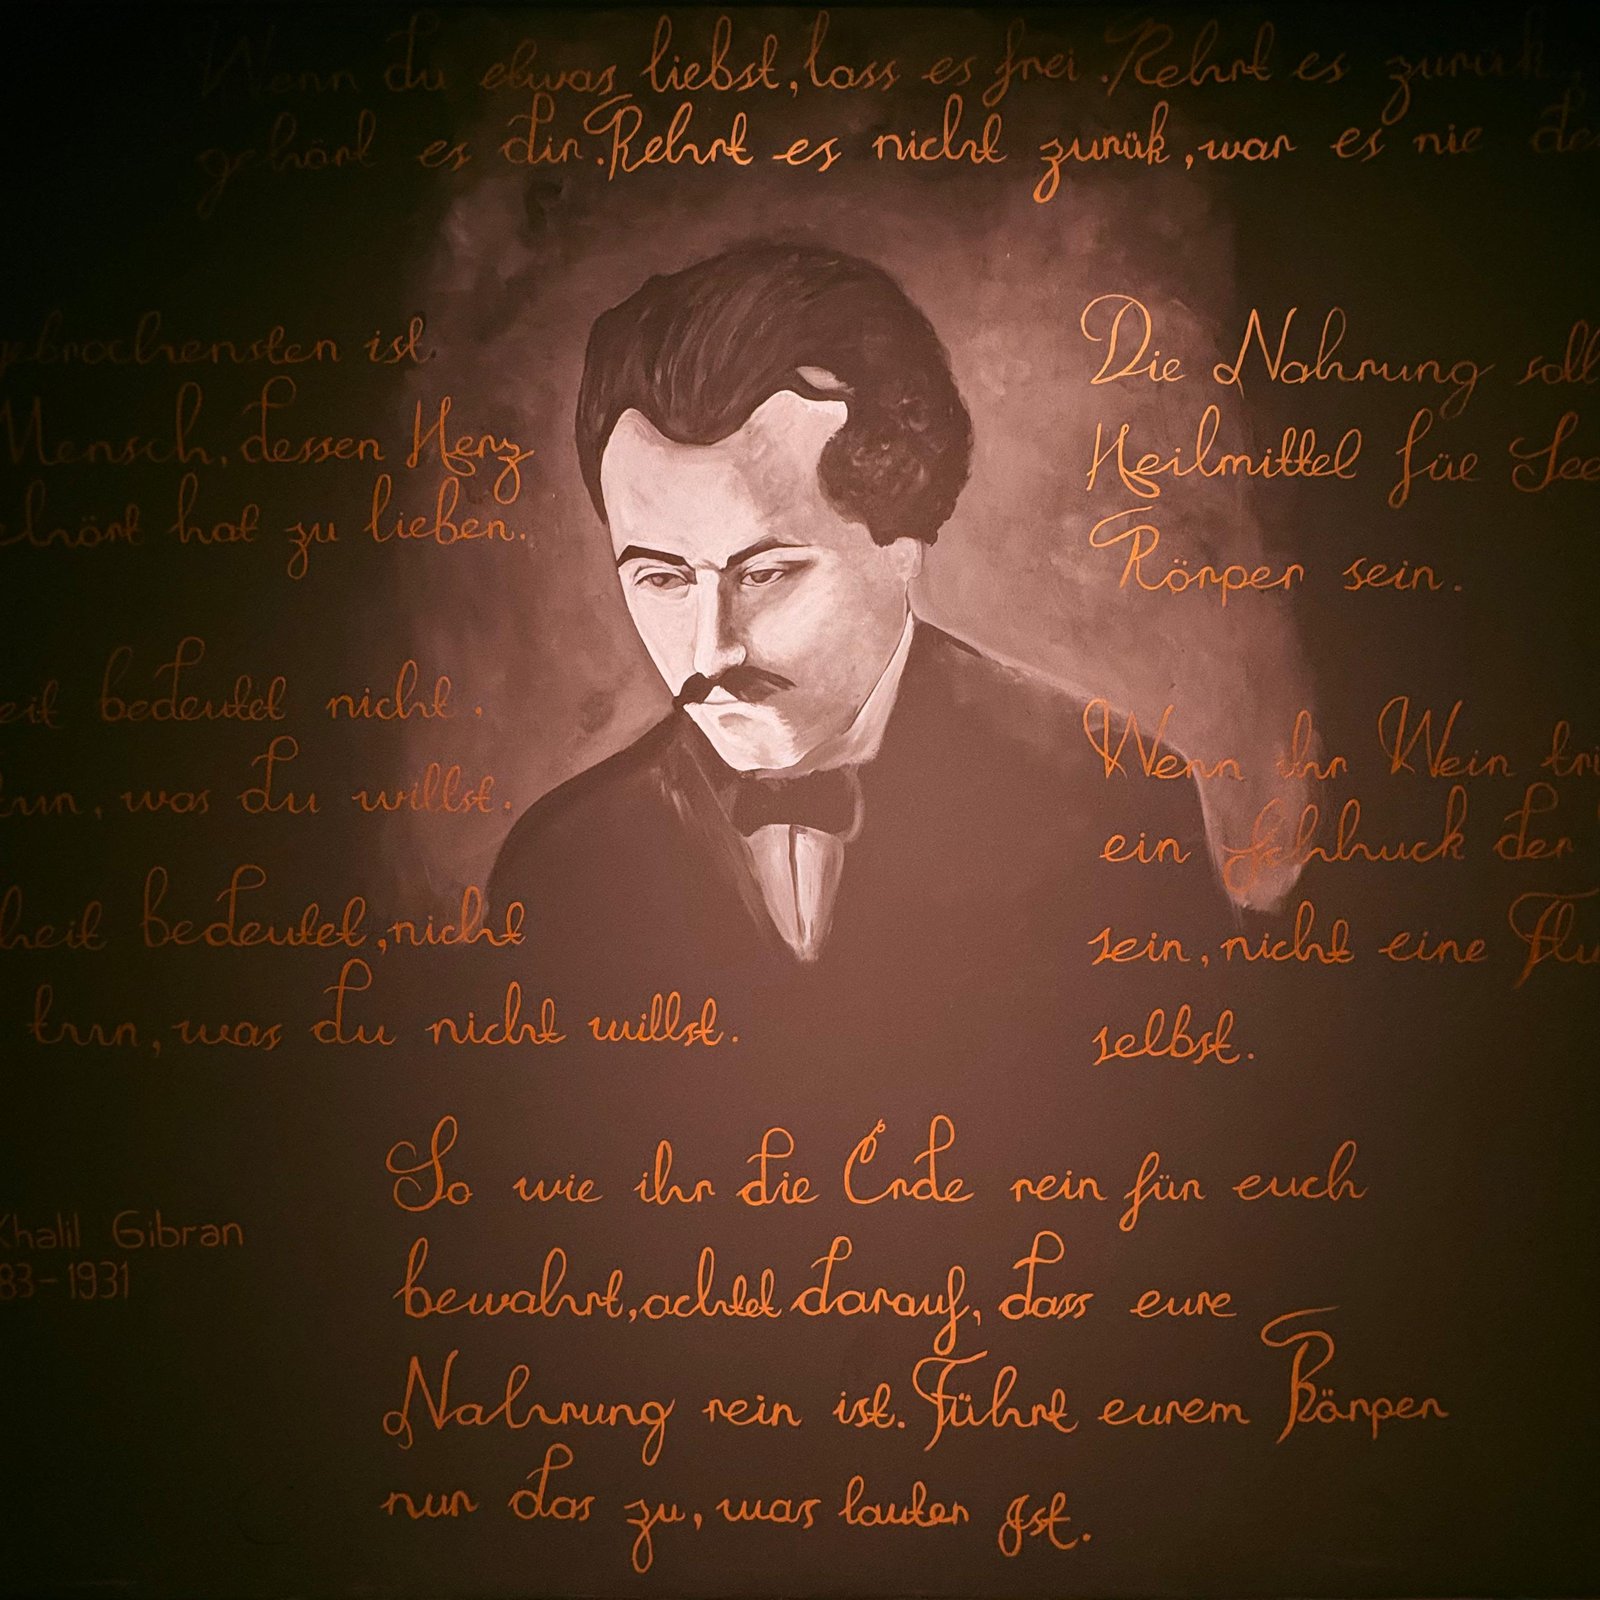 Wenn du etwas liebst, lass es frei. Kehrt es zurük,
gehört es dir. Kehrt es nicht zurük, war es nie
ist.
Mensch, dessen Herz
hat zu lieben.
bedeutet nicht.
tun, was du willst.
bedeutet, nicht
tun, was du nicht willst.
Khalil Gibran
83-1931
Die Nahrung soll
Heilmittel für
Körper sein.
Wenn ihr Wein
ein der
sein, nicht eine
selbst.
So wie ihr die Erde rein für euch
bewahrt, achtet darauf, dass eure
Nahrung rein ist. Führt eurem Körper
nur das zu, was lauter ist.